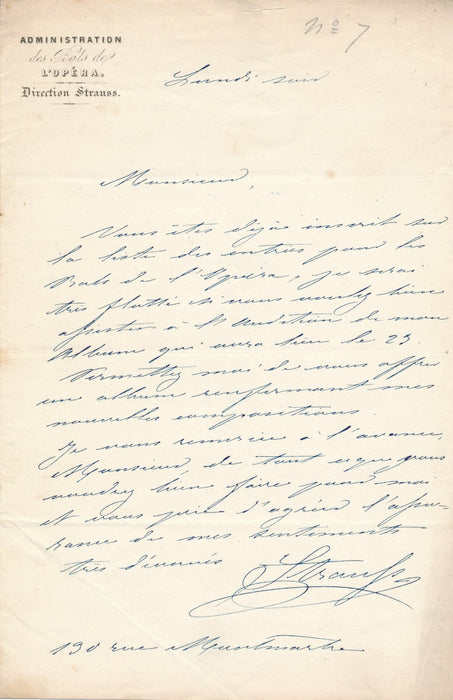 ADMINISTRATION
des Bals de
L'OPÉRA.
Direction Strauss.
No 7
Lundi soir
Monsieur,
Vous êtes déjà inscrit sur
la liste des entrées pour les
Bals de l'Opéra, je serai
très flatté si vous voulez bien
assister à l'Audition de mon
Album qui aura lieu le 23.
Permettez moi de vous offrir
un album renfermant mes
nouvelles compositions.
Je vous remercie à l'avance,
Monsieur de tout ce que vous
voudrez bien faire pour moi
et vous prie d'agréer l'assu-
rance de mes sentiments
très dévoués
Strauss
190 rue Montmartre